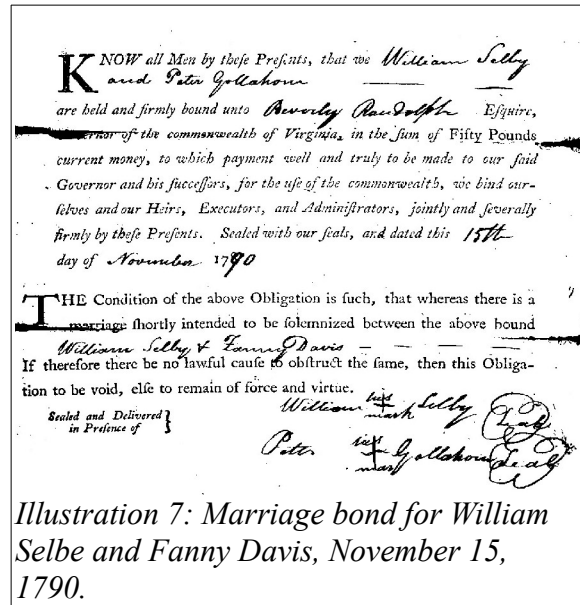 KNOW all Men by theſe Preſents, that we William Selby
and Peter Gollahorn
are held and firmly bound unto Beverly Randolph Eſquire,
Governor of the commonwealth of Virginia, in the ſum of Fifty Pounds
current money, to which payment well and truly to be made to our ſaid
Governor and his ſucceſſors, for the uſe of the commonwealth, we bind our-
ſelves and our Heirs, Executors, and Adminiſtrators, jointly and ſeverally
firmly by theſe Preſents. Sealed with our ſeals, and dated this 15th
day of November 1790
THE Condition of the above Obligation is ſuch, that whereas there is a
marriage ſhortly intended to be ſolemnized between the above bound
William Selby & Fanny Davis
If therefore there be no lawful cauſe to obſtruct the ſame, then this Obliga-
tion to be void, elſe to remain of force and virtue.
Sealed and Delivered
in Preſence of }
William his mark Selby Seal
his mark Gollahorn Seal
Illustration 7: Marriage bond for William
Selbe and Fanny Davis, November 15,
1790.